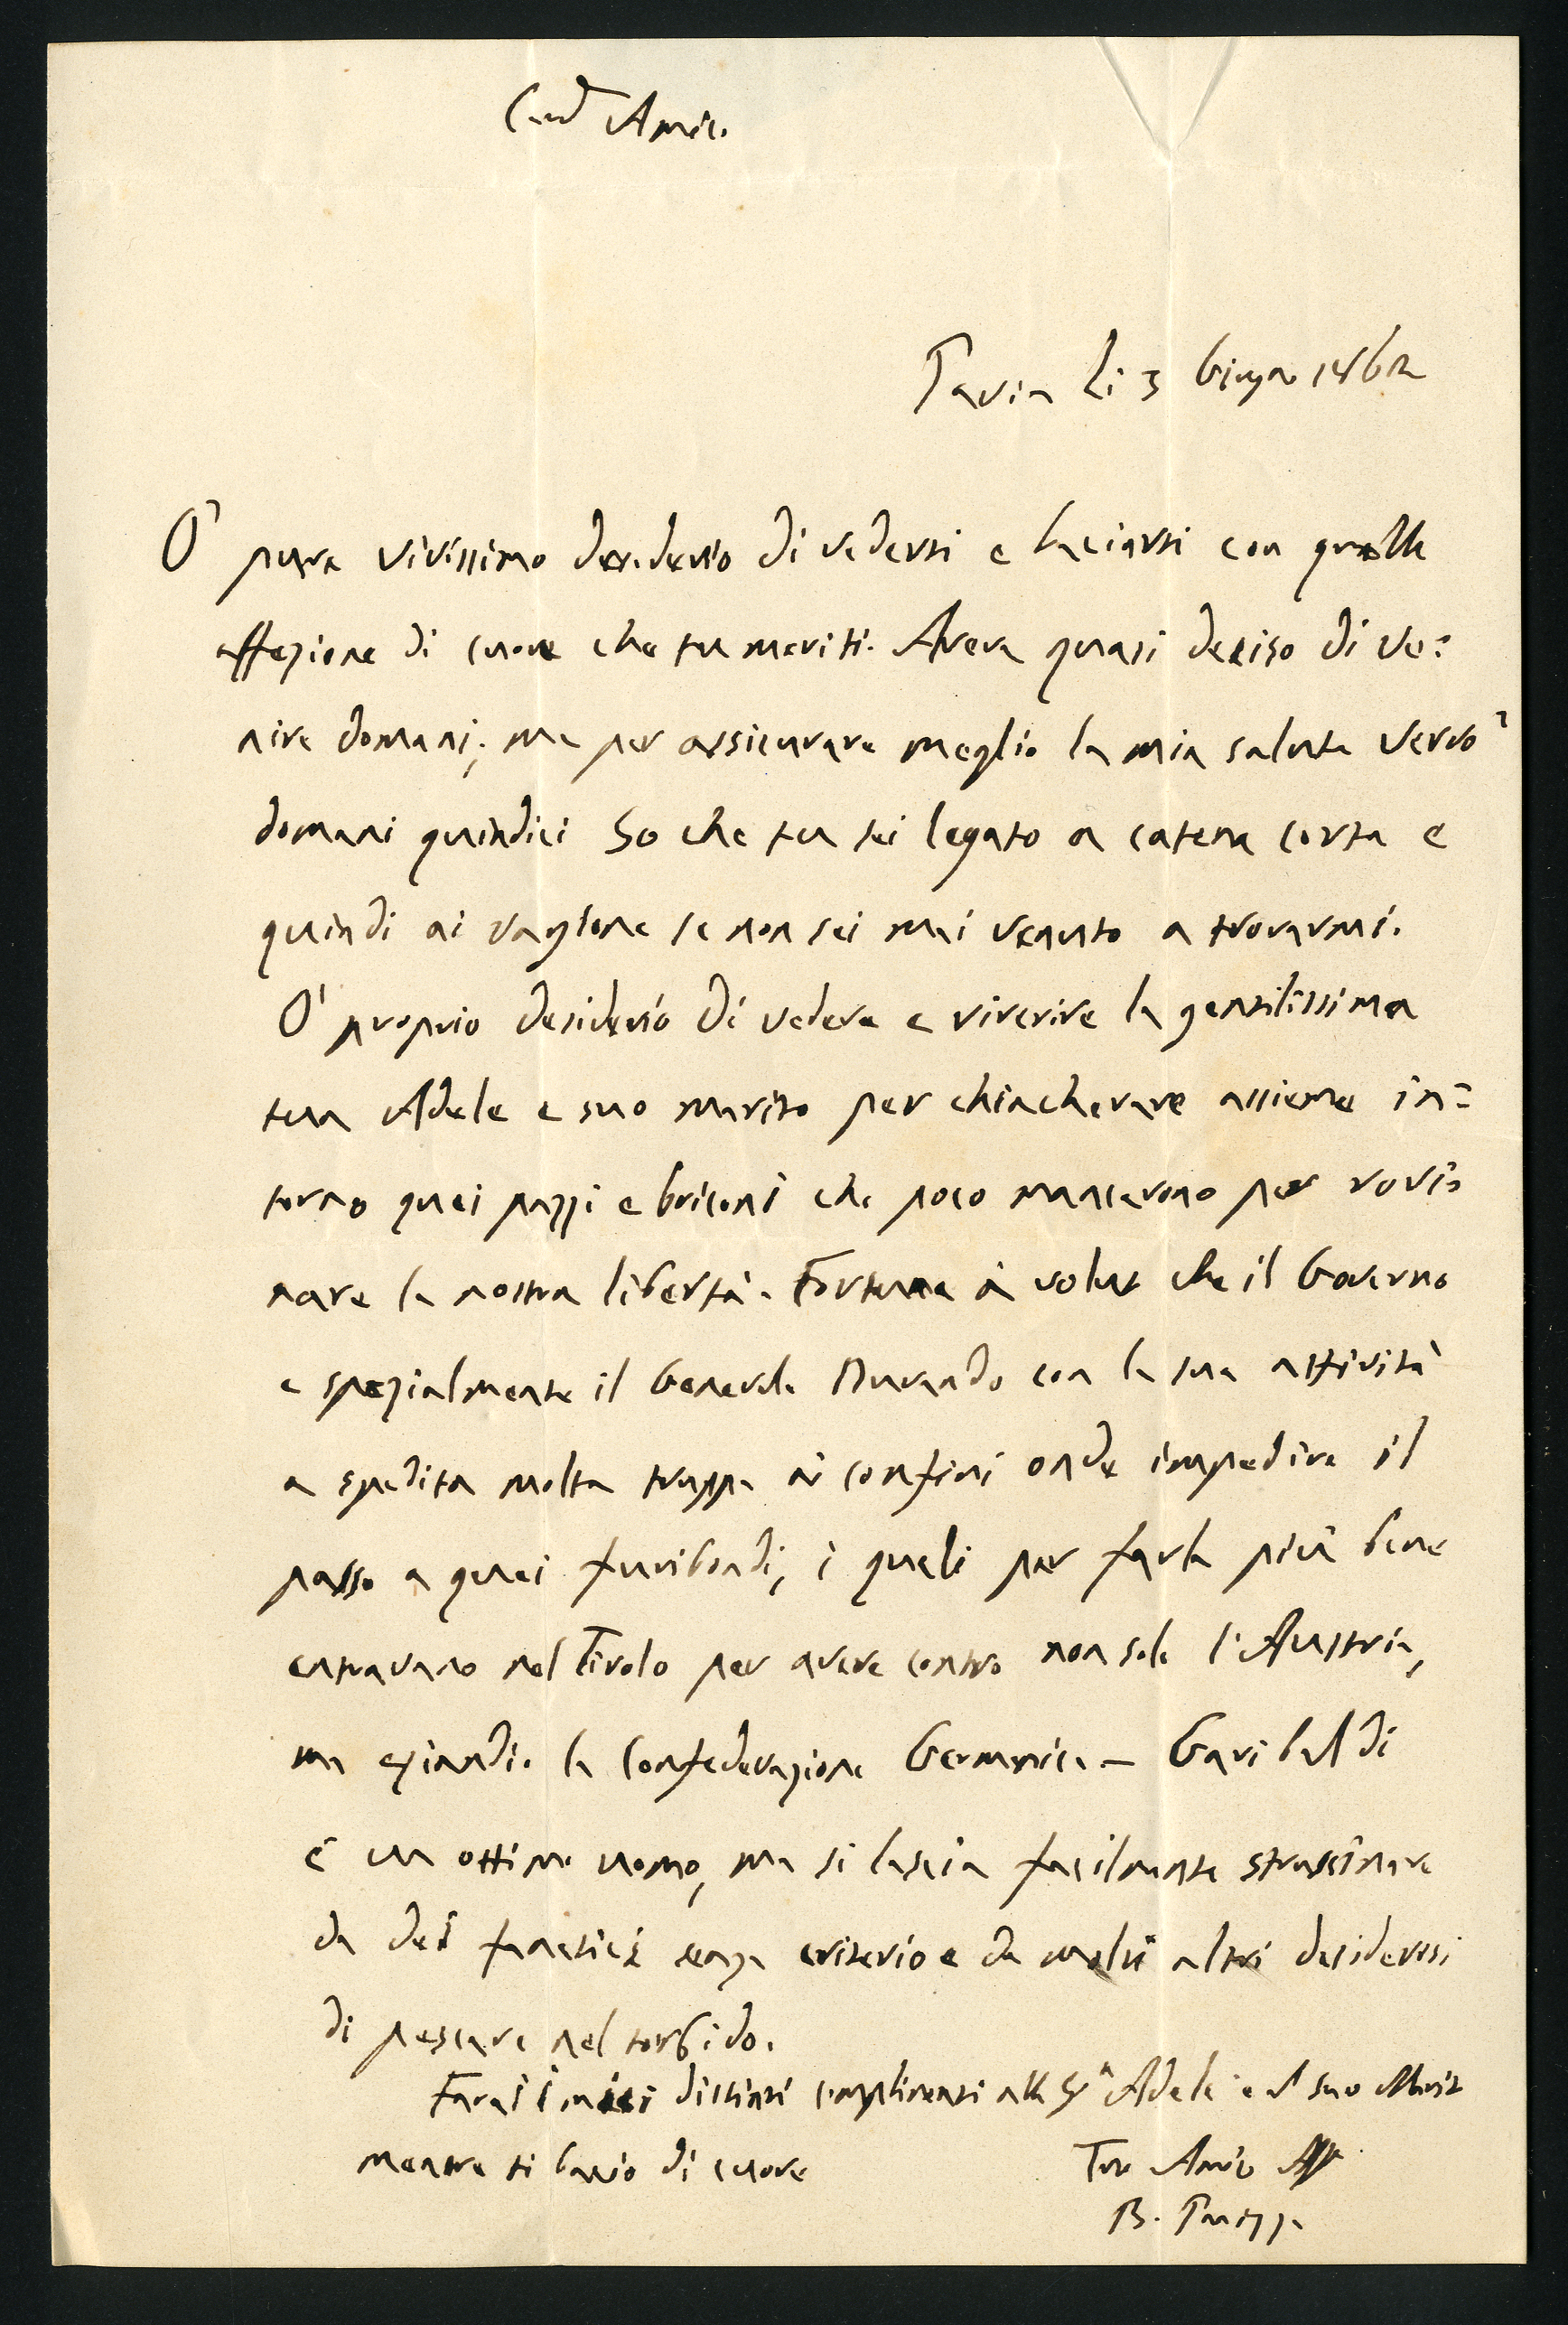 Car° Amico
Pavia li 3 Giugno 1862
O' pure vivissimo desiderio di vedersi e baciarsi con quella
affezione di cuore che tu meriti. Aveva quasi deciso di ve=
nire domani; ma per assicurare meglio la mia salute verrò
domani quindici So che tu sei legato a catena corta e
quindi ai ragione se non sei mai venuto a trovarmi.
O' proprio desiderio di vedere e riverire la gentilissima
tua Adele e suo marito per chiacherare assieme in=
torno quei pazzi e briconi che poco mancarono per rovi=
nare la nostra libertà. Fortuna à voluto che il Governo
e spezialmente il Generale Durando con la sua attività
a spedita molta truppa ai confini onde impedire il
passo a quei furibondi, i quali per farla più bene
entravano nel Tirolo per avere contro non solo l'Austria,
ma eziandio la Confederazione Germanica – Garibaldi
è un ottimo uomo, ma si lascia facilmente strascinare
da dei fanatici senza criterio e da molti altri desiderosi
di pescare nel torbido.
Farai i miei distinti complimenti alla Sigª Adele e al suo Marito
mentre ti bacio di cuore
Tuo Amico Aff
B.